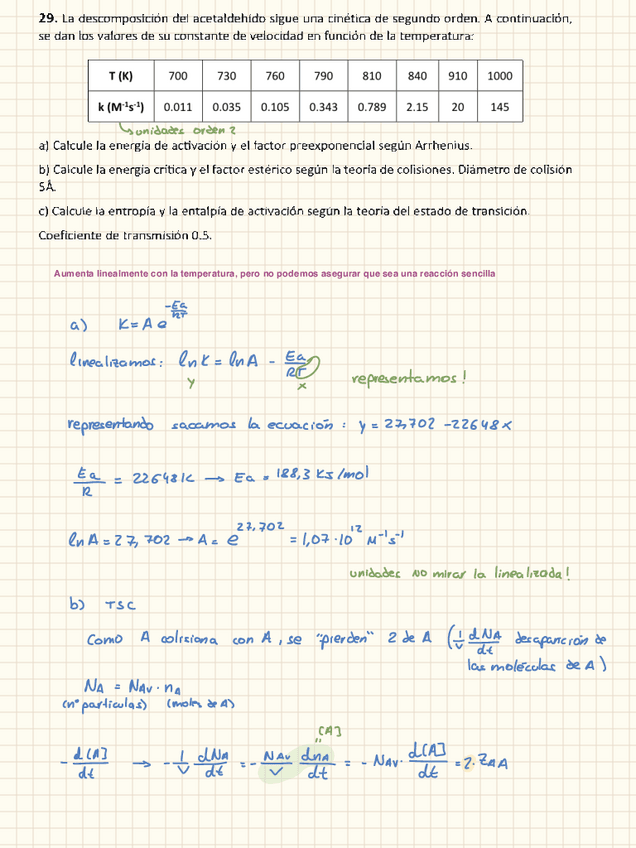 29. La descomposición del acetaldehído sigue una cinética de segundo orden. A continuación,
se dan los valores de su constante de velocidad en función de la temperatura:
T (K) 700 730 760 790 810 840 910 1000
k (M⁻¹s⁻¹) 0.011 0.035 0.105 0.343 0.789 2.15 20 145
↳ unidades orden 2
a) Calcule la energía de activación y el factor preexponencial según Arrhenius.
b) Calcule la energía crítica y el factor estérico según la teoría de colisiones. Diámetro de colisión
5Å.
c) Calcule la entropía y la entalpía de activación según la teoría del estado de transición.
Coeficiente de transmisión 0.5.
Aumenta linealmente con la temperatura, pero no podemos asegurar que sea una reacción sencilla
a) K = A e^(-Ea/RT)
linealizamos: ln K = ln A - Ea/RT
y x representamos!
representando sacamos la ecuación: y = 27,702 - 22648 x
Ea/R = 22648 K → Ea = 188,3 KJ/mol
ln A = 27,702 → A = e^27,702 = 1,07·10^12 M⁻¹s⁻¹
unidades NO mirar la linealizada!
b) TSC
Como A colisiona con A, se "pierden" 2 de A (1/V dNA/dt desaparición de
las moléculas de A)
NA = NAv · nA
(nº partículas) (moles de A)
[A]
"
- d[A]/dt → - 1/V dNA/dt = - NAv/V dnA/dt = - NAv · d[A]/dt = 2· ZAA